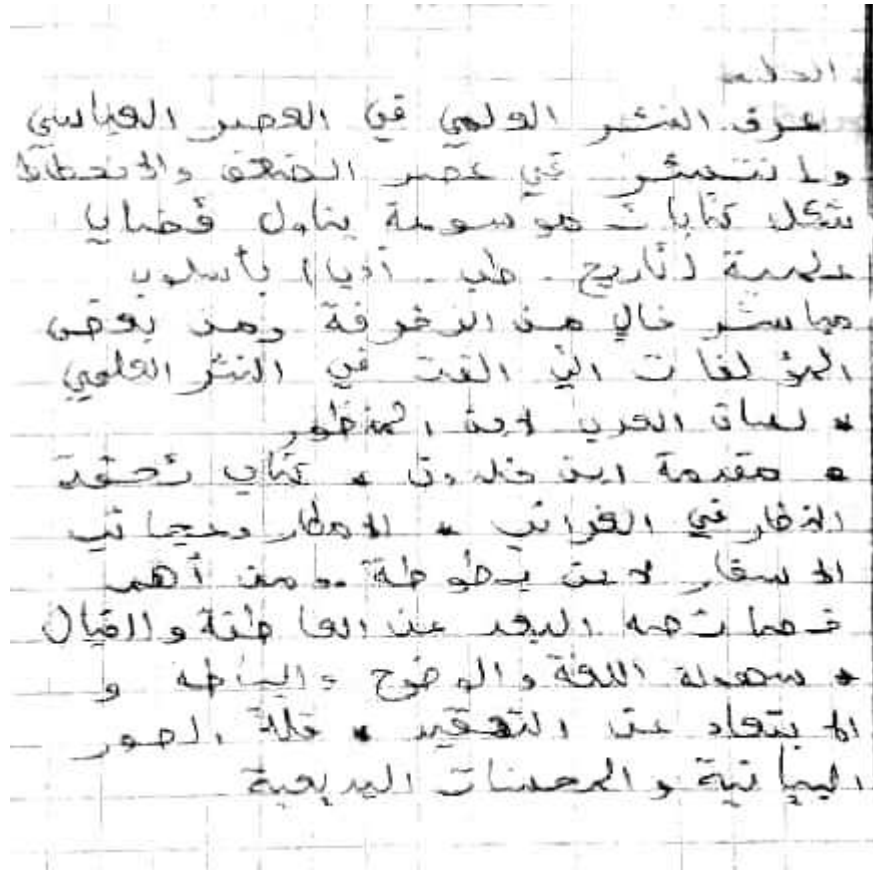 عرف النثر العلمي في العصر العباسي
وانتشر في عصر الضعف والانحطاط
شكل كتابات موسوعة يناول قضايا
علمية (تاريخ - طب - أديا) بأسلوب
مباشر خال من الزخرفة ومن بعض
المؤلفات التي الفت في النثر العلمي
* لسان العرب لابن المنظور
* مقدمة ابن خلدون * كتاب تحفة
النظار في الغرائب * الامطار وعجائب
الاسفار لابن بطوطة .. من أهم
خصائصه البعد عن العاطفة والخيال
* سهولة اللغة والوضوح والبساطة و
الابتعاد عن التعقيد * قلة الصور
البيانية والمحسنات البديعية